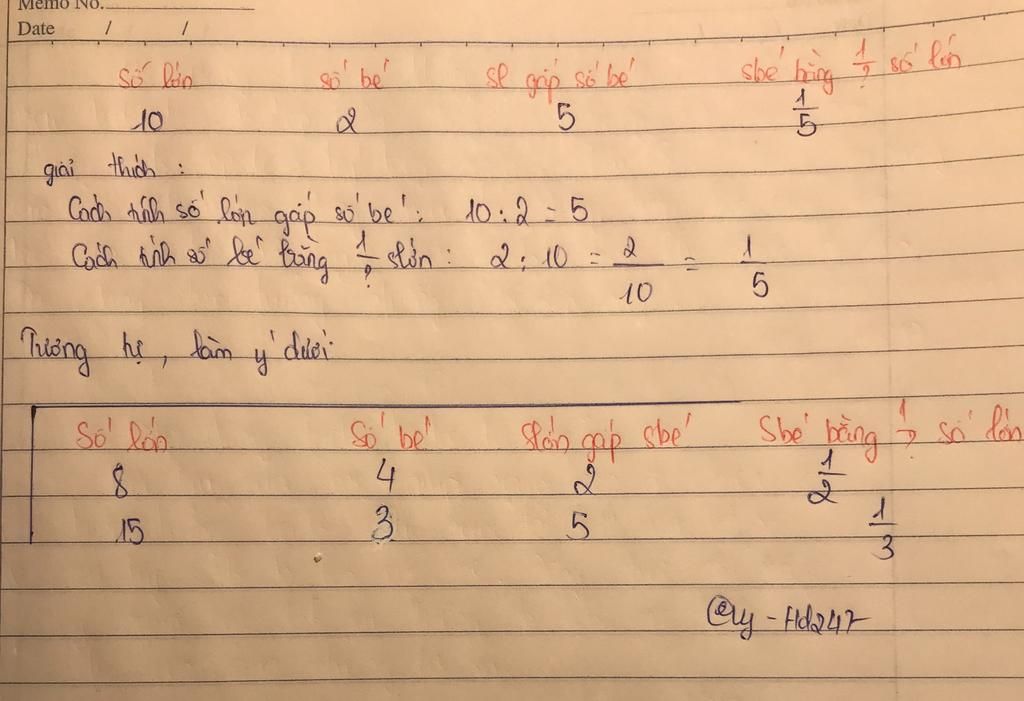 Memo No.
Date / /
số lớn số bé sl gấp số bé sbé bằng 1/? số lớn
10 2 5 1/5
giải thích :
Cách tính số lớn gấp số bé : 10 : 2 = 5
Cách tính số bé bằng 1/? slớn : 2 : 10 = 2/10 = 1/5
Tương tự , làm ý dưới
Số lớn Số bé slớn gấp sbé Sbé bằng 1/? số lớn
8 4 2 1/2
15 3 5 1/3